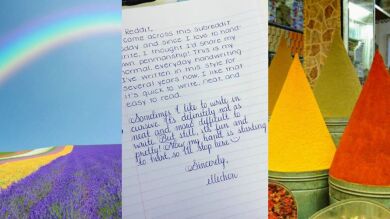 Reddit,
come across this subreddit
day and since I love to hand-
write, I thought I'd share my
own penmanship! This is my
normal, everyday handwriting
I've written in this style for
several years now, I like that
it's quick to write, neat, and
easy to read.
Sometimes I like to write in
cursive. It's definitely not as
neat and more difficult to
write. But still, it's fun and
pretty! Now my hand is starting
to hurt, so I'll stop here
Sincerely,